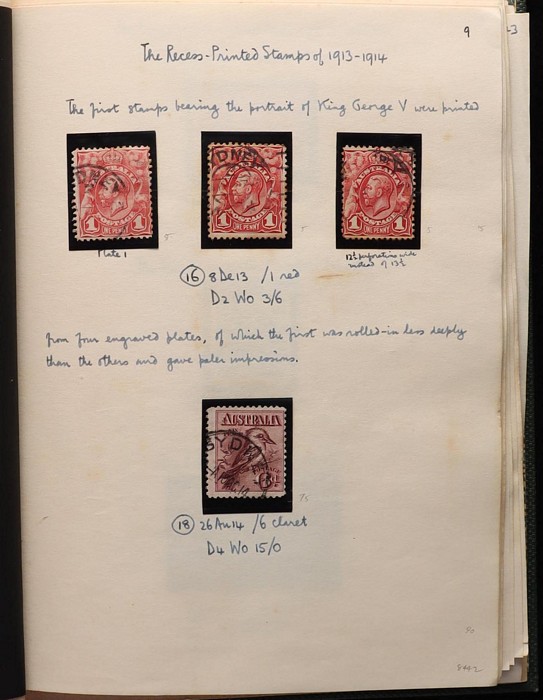 9
The Recess-Printed Stamps of 1913-1914
The first stamps bearing the portrait of King George V were printed
AUSTRALIA
POSTAGE
1 1
ONE PENNY
SYDNEY
AUSTRALIA
POSTAGE
1 1
ONE PENNY
AUSTRALIA
POSTAGE
1 1
ONE PENNY
5
5
5
5
Plate 1
12½ perforations wide
instead of 13½
16 8De13 /1 red
D2 Wo 3/6
from four engraved plates, of which the first was rolled-in less deeply
than the others and gave paler impressions.
AUSTRALIA
SYDNEY
6D
75
18 26Au14 /6 claret
D4 Wo 15/0